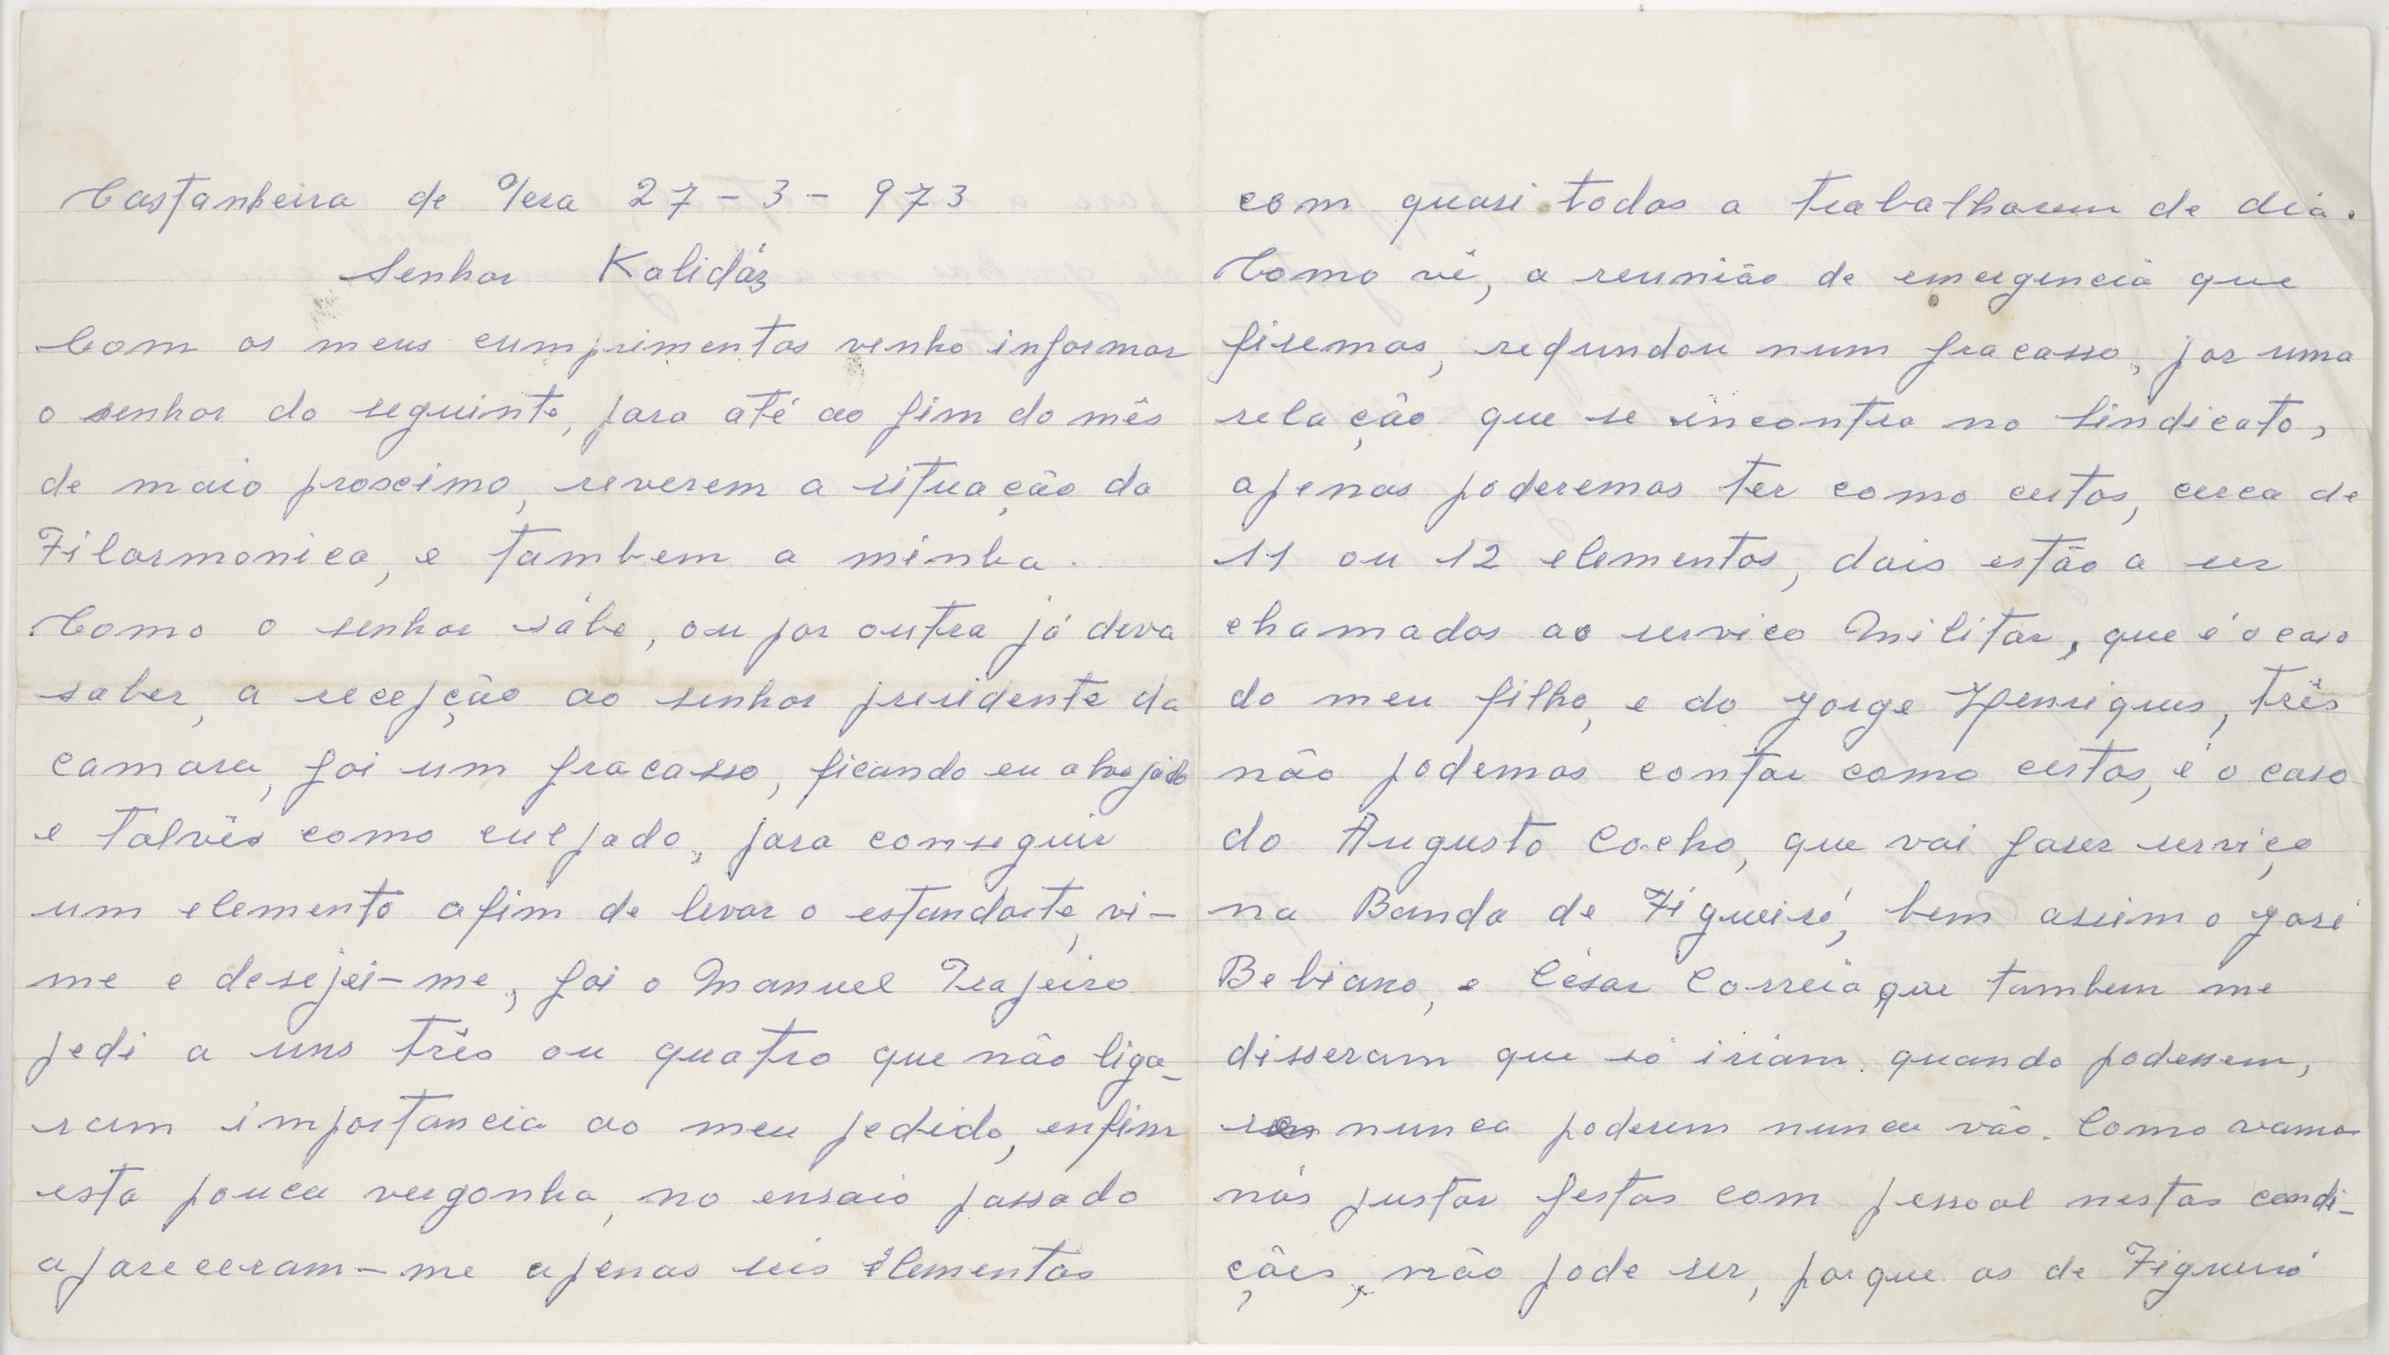 Castanheira de Pera 27-3-973
Senhor Kalidás
Com os meus cumprimentos venho informar
o senhor do seguinte, para até ao fim do mês
de maio proscimo, reverem a situação da
Filarmonica, e tambem a minha.
Como o senhor sábe, ou por outra já deva
saber, a recepção ao senhor presidente da
camara, foi um fracasso, ficando eu
e talvês como culpado, para conseguir
um elemento afim de levar o estandarte, vi-
me e desejei-me, foi o Manuel Trapeiro
pedi a uns três ou quatro que não liga-
ram importancia ao meu pedido, enfim
esta pouca vergonha, no ensaio passado
apareceram-me apenas seis elementos
com quasi todos a trabalharem de dia.
Como vê, a reunião de emergencia que
fisemos, redundou num fracasso, por uma
relação que se incontra no Sindicato,
apenas poderemos ter como certos, cerca de
11 ou 12 elementos, dois estão a ser
chamados ao servico Militar, que é o caso
do meu filho, e do Jorge Henriques, três
não podemos contar como certos, é o caso
do Augusto Coelho, que vai faser serviço
na Banda de Figueiró, bem assim o José
Bebiano, e César Correia que tambem me
disseram que só iriam quando podessem,
nunca poderem nunca vão. Como vamos
nós justar festas com pessoal nestas condi-
ções, não pode ser, porque os de Figueiró